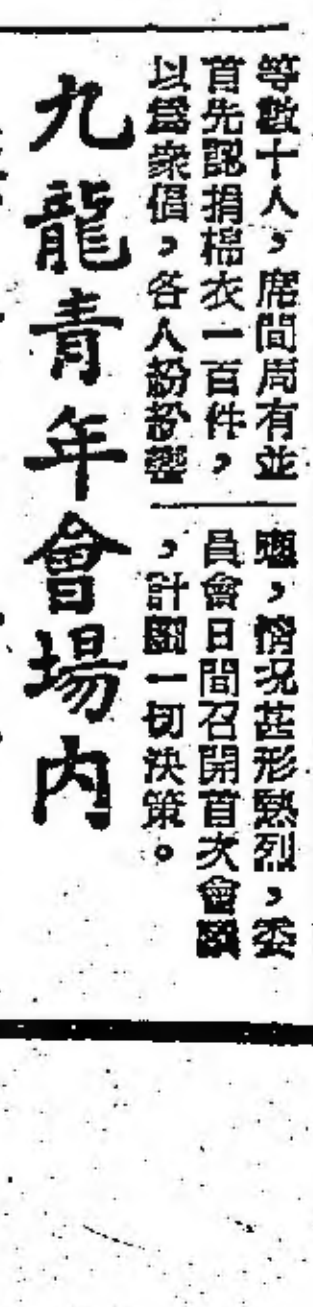 等數十人，席間周有並
首先認捐棉衣一百件，
以爲衆倡，各人紛紛響
應，情况甚形熱烈，委
員會日間召開首次會議
，計劃一切決策。
九龍青年會場内